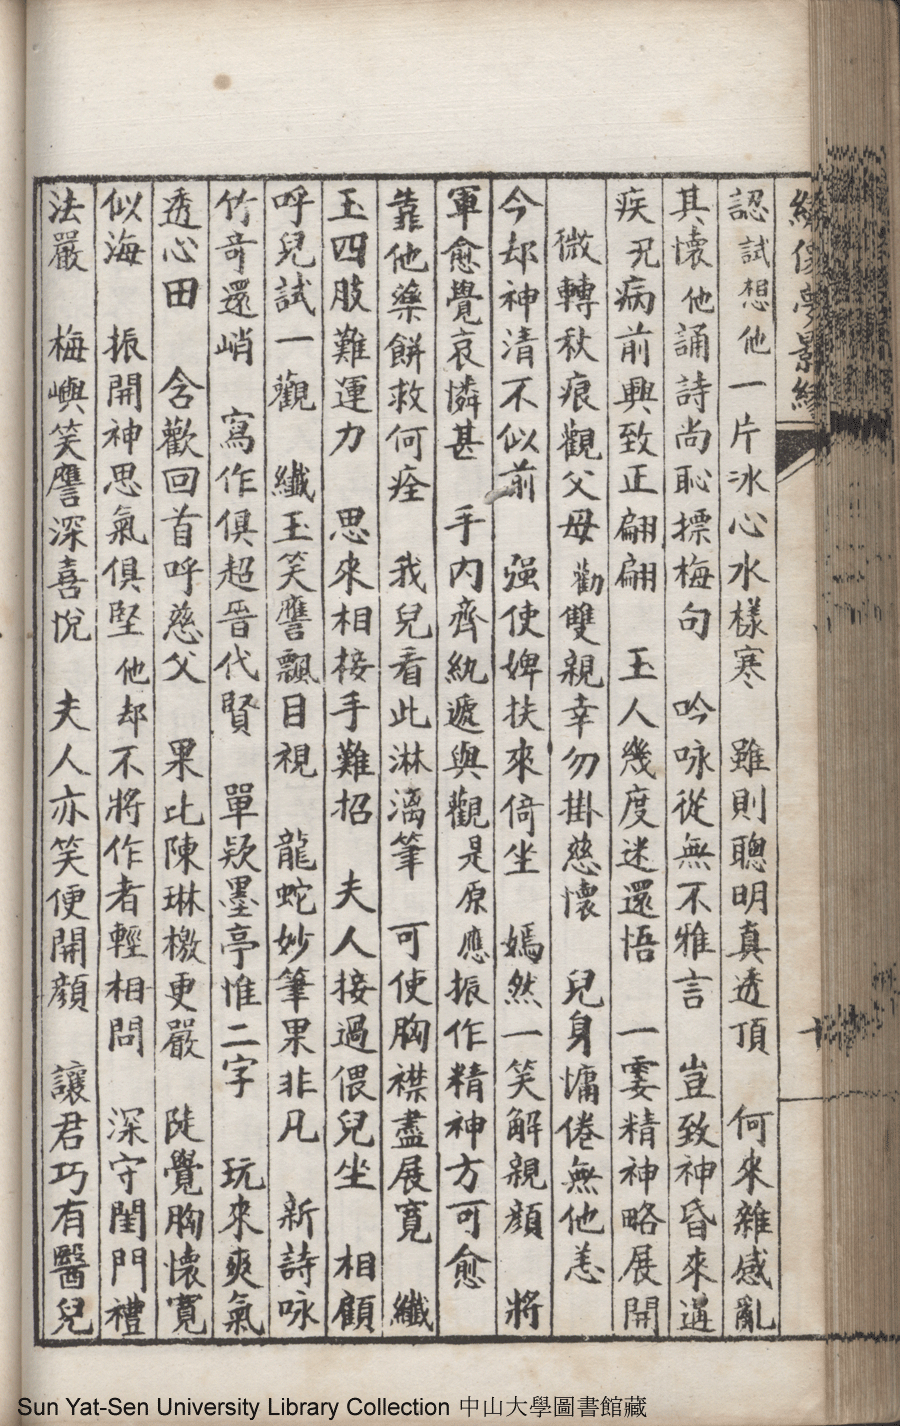 繡像夢影緣
認試想他一片冰心水樣寒　雖則聰明真透頂　何來雜感亂
其懷他誦詩尚恥摽梅句　吟咏從無不雅言　豈致神昏來遘
疾況病前興致正翩翩　玉人幾度迷還悟　一霎精神略展開
微轉秋痕觀父母勸雙親幸勿掛慈懷　兒身慵倦無他恙
今却神清不似前　强使婢扶來倚坐　嫣然一笑解親顏　將
軍愈覺哀憐甚　手內齊紈遞與觀是原應振作精神方可愈
靠他藥餅救何痊　我兒看此淋漓筆　可使胸襟盡展寬　纖
玉四肢難運力　思來相接手難招　夫人接過偎兒坐　相顧
呼兒試一觀　纖玉笑譍飄目視　龍蛇妙筆果非凡　新詩咏
竹奇還峭　寫作俱超晉代賢　單欵墨亭惟二字　玩來爽氣
透心田　含歡回首呼慈父　果比陳琳檄更嚴　陡覺胸懷寬
似海　振開神思氣俱堅他却不將作者輕相問　深守閨門禮
法嚴　梅嶼笑譍深喜悅　夫人亦笑便開顏　讓君巧有醫兒
Sun Yat-Sen University Library Collection 中山大學圖書館藏